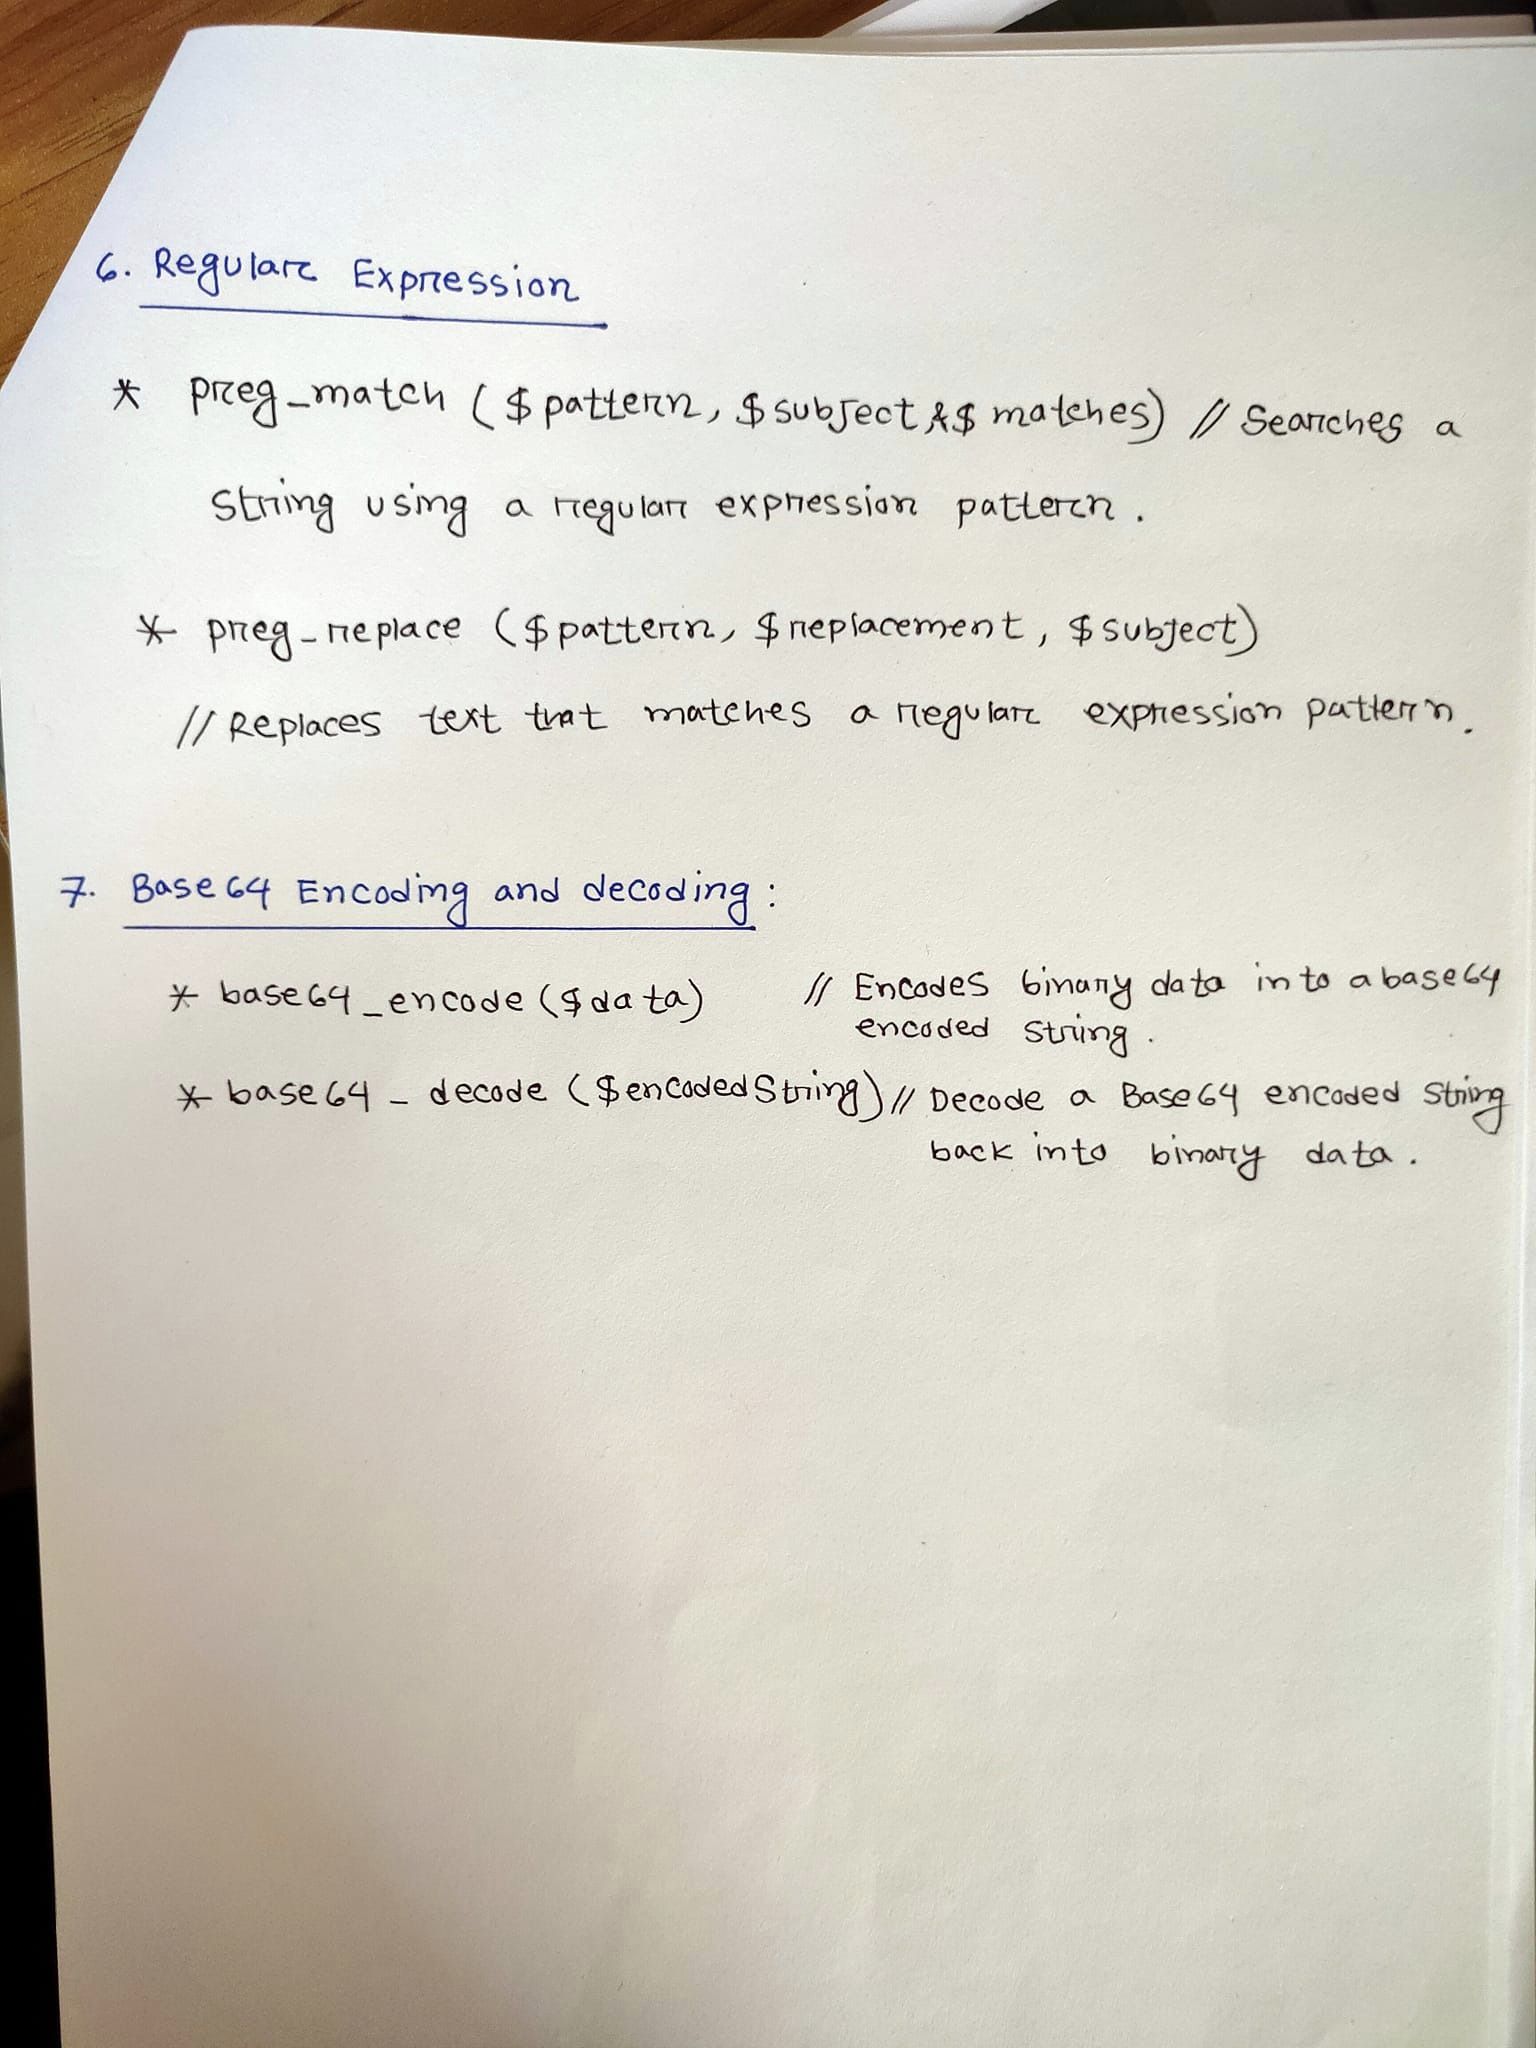 6. Regular Expression
* preg_match ($pattern, $subject &$ matches) // Searches a
string using a regular expression pattern.
* preg_replace ($pattern, $replacement, $subject)
// Replaces text that matches a regular expression pattern.
7. Base64 Encoding and decoding :
* base64_encode ($data) // Encodes binary data into a base64
encoded string.
* base64_decode ($encodedString) // Decode a Base64 encoded String
back into binary data.